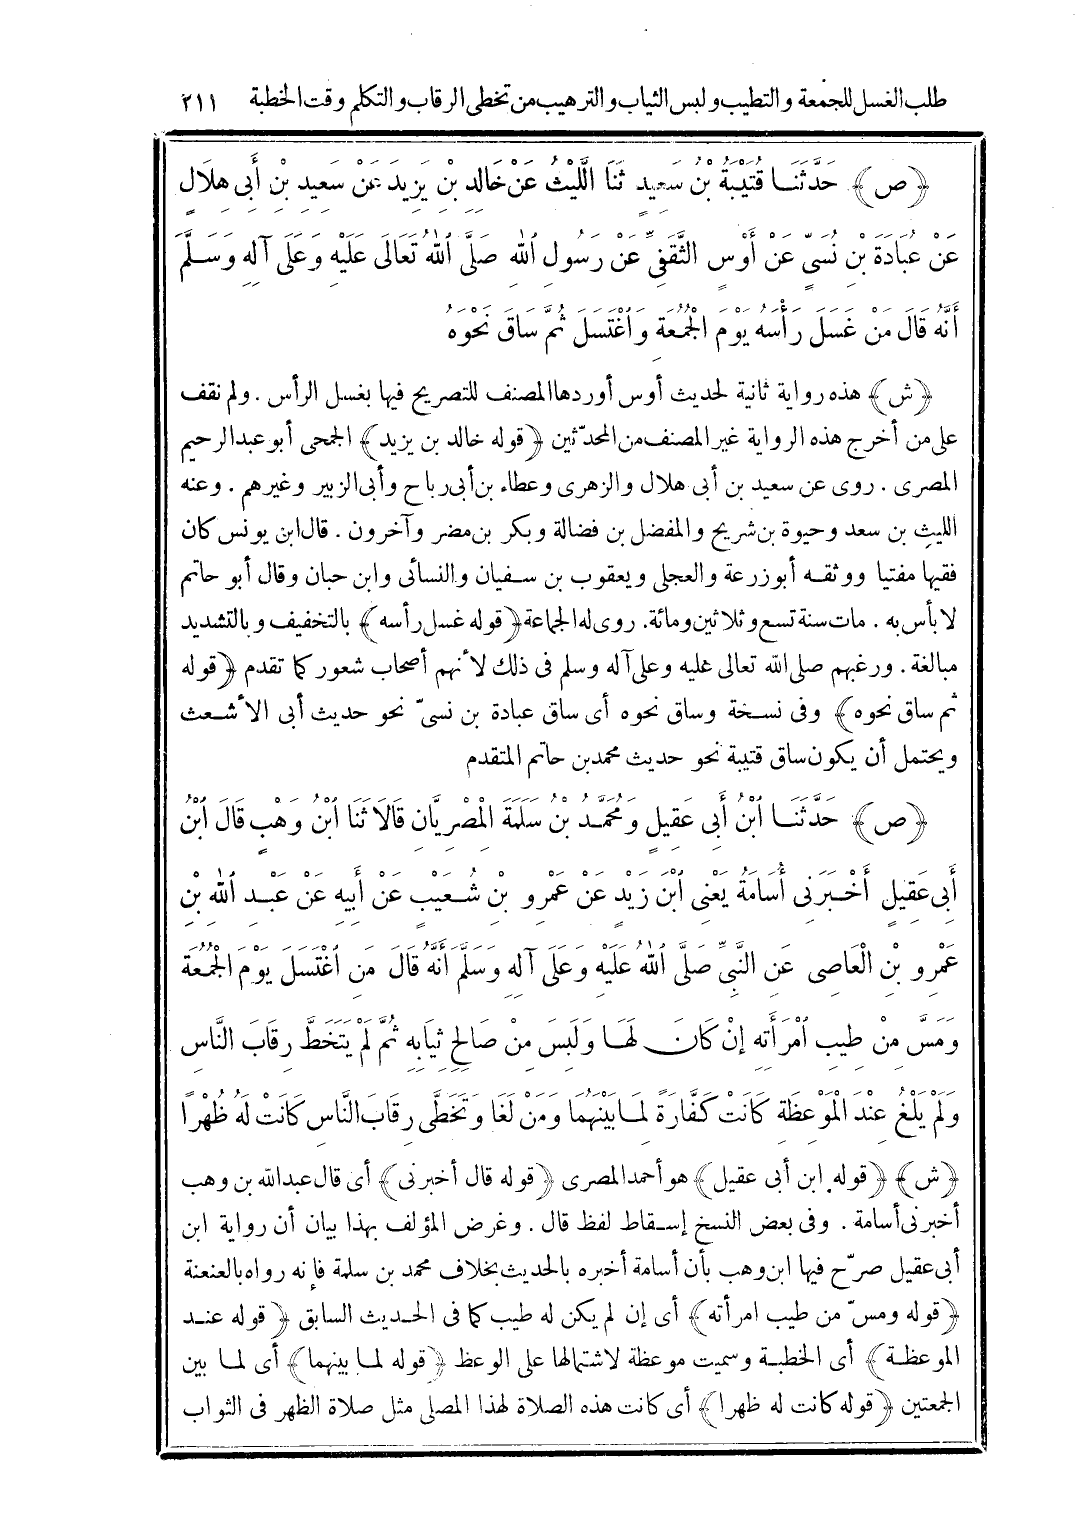 طلب الغسل للجمعة والتطيب ولبس الثياب والترهيب من تخطى الرقاب والتكلم وقت الخطبة ٢١١
﴿ص﴾ حَدَّثَنَا قُتَيْبَةُ بْنُ سَعِيدٍ ثَنَا اللَّيْثُ عَنْ خَالِدِ بْنِ يَزِيدَ عَنْ سَعِيدِ بْنِ أَبِي هِلَالٍ
عَنْ عُبَادَةَ بْنِ نُسَيٍّ عَنْ أَوْسٍ الثَّقَفِيِّ عَنْ رَسُولِ اللهِ صَلَّى اللهُ تَعَالَى عَلَيْهِ وَعَلَى آلِهِ وَسَلَّمَ
أَنَّهُ قَالَ مَنْ غَسَلَ رَأْسَهُ يَوْمَ الْجُمُعَةِ وَاغْتَسَلَ ثُمَّ سَاقَ نَحْوَهُ
﴿ش﴾ هذه رواية ثانية لحديث أوس أوردها المصنف للتصريح فيها بغسل الرأس . ولم نقف
على من أخرج هذه الرواية غير المصنف من المحدّثين ﴿قوله خالد بن يزيد﴾ الجمحى أبو عبد الرحيم
المصرى . روى عن سعيد بن أبى هلال والزهرى وعطاء بن أبى رباح وأبى الزبير وغيرهم . وعنه
الليث بن سعد وحيوة بن شريح والمفضل بن فضالة وبكر بن مضر وآخرون . قال ابن يونس كان
فقيها مفتيا ووثقه أبو زرعة والعجلى ويعقوب بن سفيان والنسائى وابن حبان وقال أبو حاتم
لا بأس به . مات سنة تسع وثلاثين ومائة. روى له الجماعة ﴿قوله غسل رأسه﴾ بالتخفيف وبالتشديد
مبالغة . ورغبهم صلى الله تعالى عليه وعلى آله وسلم فى ذلك لأنهم أصحاب شعور كما تقدم ﴿قوله
ثم ساق نحوه﴾ وفى نسخة وساق نحوه أى ساق عبادة بن نسىّ نحو حديث أبى الأشعث
ويحتمل أن يكون ساق قتيبة نحو حديث محمد بن حاتم المتقدم
﴿ص﴾ حَدَّثَنَا ابْنُ أَبِي عَقِيلٍ وَمُحَمَّدُ بْنُ سَلَمَةَ الْمِصْرِيَّانِ قَالَا ثَنَا ابْنُ وَهْبٍ قَالَ ابْنُ
أَبِي عَقِيلٍ أَخْبَرَنِي أُسَامَةُ يَعْنِي ابْنَ زَيْدٍ عَنْ عَمْرِو بْنِ شُعَيْبٍ عَنْ أَبِيهِ عَنْ عَبْدِ اللهِ بْنِ
عَمْرِو بْنِ الْعَاصِي عَنِ النَّبِيِّ صَلَّى اللهُ عَلَيْهِ وَعَلَى آلِهِ وَسَلَّمَ أَنَّهُ قَالَ مَنِ اغْتَسَلَ يَوْمَ الْجُمُعَةِ
وَمَسَّ مِنْ طِيبِ امْرَأَتِهِ إِنْ كَانَ لَهَا وَلَبِسَ مِنْ صَالِحِ ثِيَابِهِ ثُمَّ لَمْ يَتَخَطَّ رِقَابَ النَّاسِ
وَلَمْ يَلْغُ عِنْدَ الْمَوْعِظَةِ كَانَتْ كَفَّارَةً لِمَا بَيْنَهُمَا وَمَنْ لَغَا وَتَخَطَّى رِقَابَ النَّاسِ كَانَتْ لَهُ ظُهْرًا
﴿ش﴾ ﴿قوله ابن أبى عقيل﴾ هو أحمد المصرى ﴿قوله قال أخبرنى﴾ أى قال عبد الله بن وهب
أخبرنى أسامة . وفى بعض النسخ إسقاط لفظ قال . وغرض المؤلف بهذا بيان أن رواية ابن
أبى عقيل صرّح فيها ابن وهب بأن أسامة أخبره بالحديث بخلاف محمد بن سلمة فإنه رواه بالعنعنة
﴿قوله ومسّ من طيب امرأته﴾ أى إن لم يكن له طيب كما فى الحديث السابق ﴿قوله عند
الموعظة﴾ أى الخطبة وسميت موعظة لاشتمالها على الوعظ ﴿قوله لما بينهما﴾ أى لما بين
الجمعتين ﴿قوله كانت له ظهرا﴾ أى كانت هذه الصلاة لهذا المصلى مثل صلاة الظهر فى الثواب